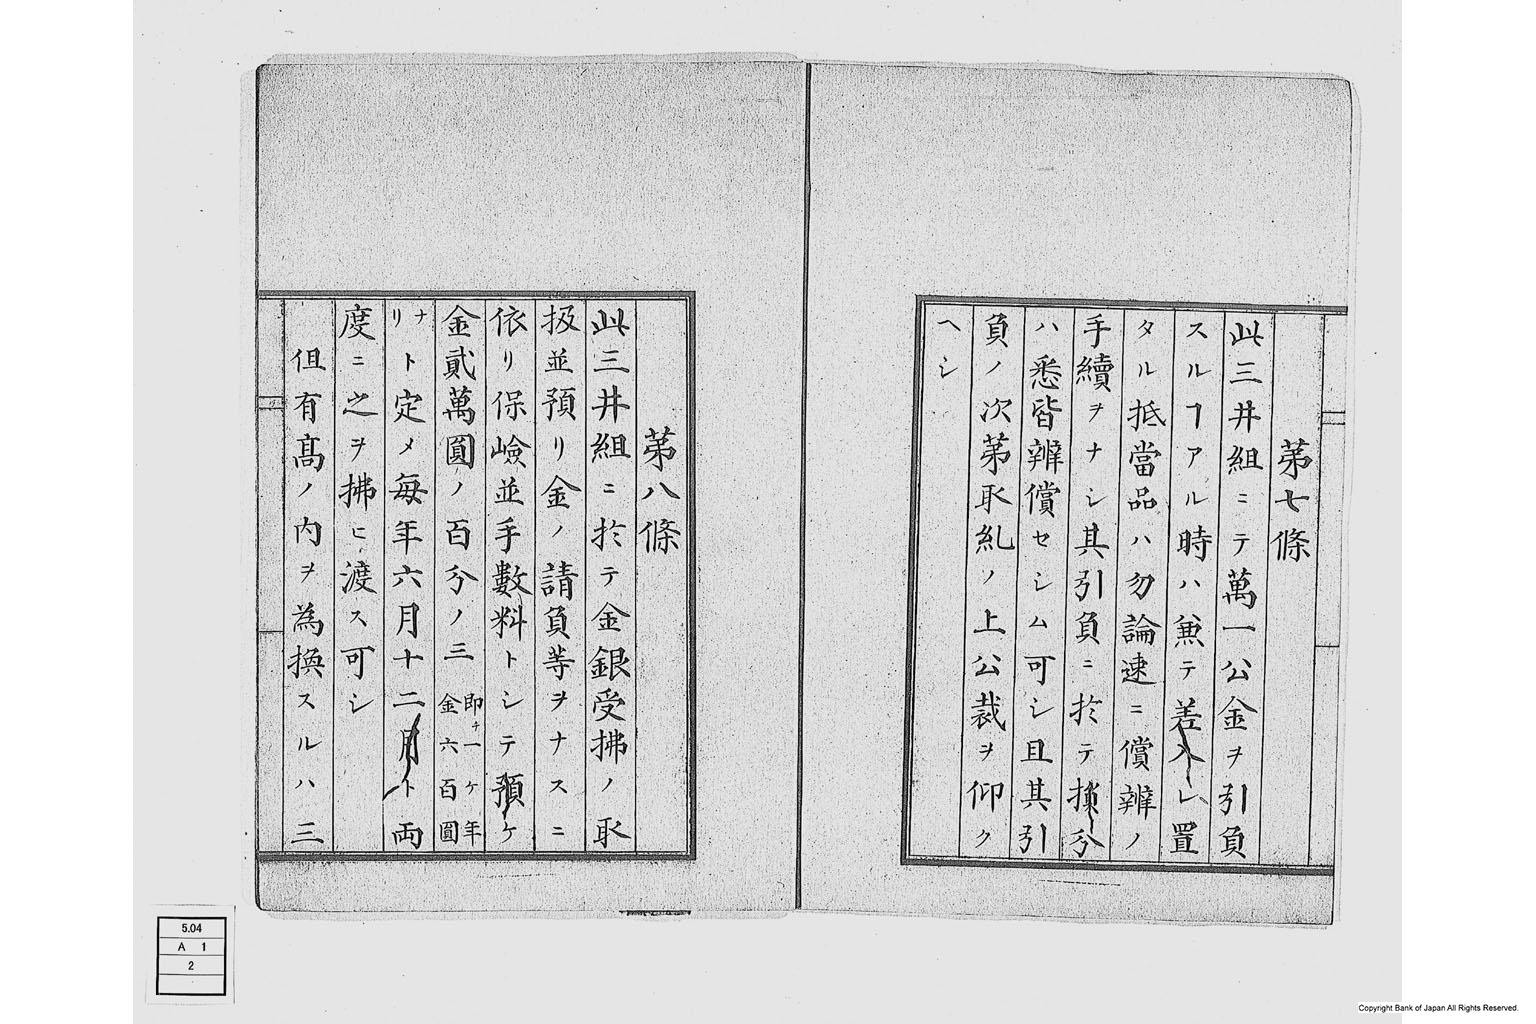 第七條
此三井組ニテ萬一公金ヲ引負
スルヿアル時ハ兼テ差入レ置
タル抵當品ハ勿論速ニ償辨ノ
手續ヲナシ其引負ニ於テ損分
ハ悉皆辨償セシム可シ且其引
負ノ次第取糺ノ上公裁ヲ仰ク
ヘシ
第八條
此三井組ニ於テ金銀受拂ノ取
扱並預リ金ノ請負等ヲナスニ
依リ保險並手數料トシテ預ケ
金貳萬圓ノ百分ノ三 即チ一ケ年金六百圓
ナリト定メ毎年六月十二月ト両
度ニ之ヲ拂ヒ渡ス可シ
但有髙ノ内ヲ為換スルハ三
5.04
A 1
2
Copyright Bank of Japan All Rights Reserved.